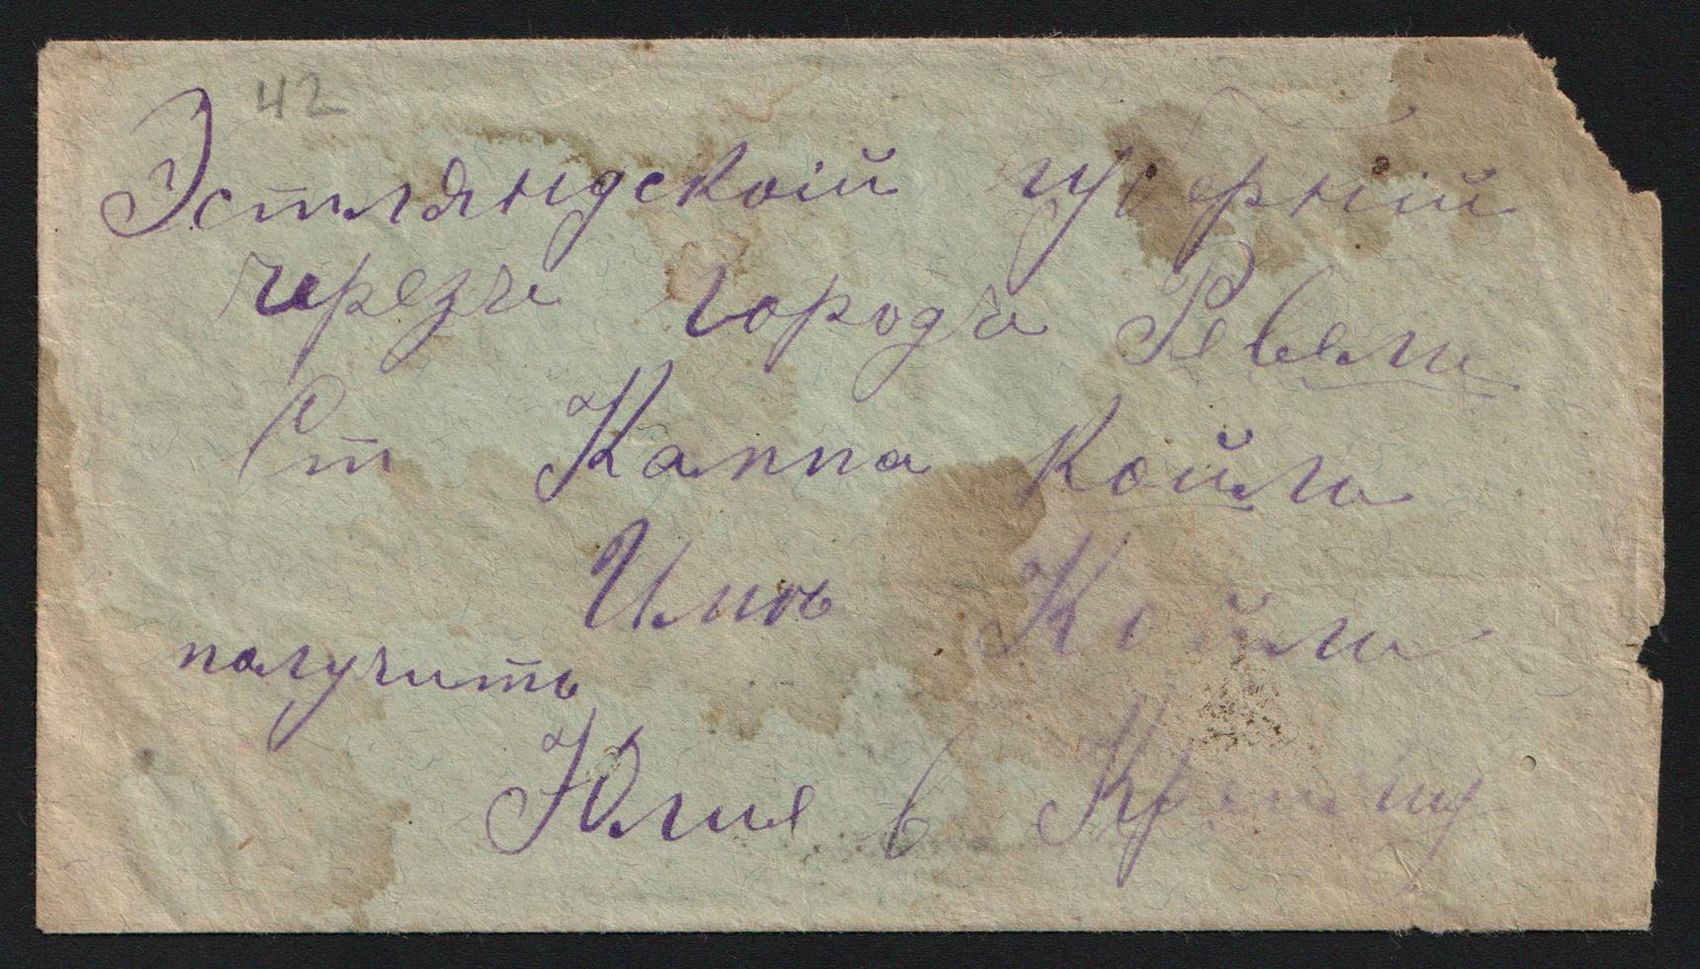 42
Эстляндскоій губерніи
черезъ городъ Ревель
Ст Каппа Койль
Имѣ Койль
получить
Юлие